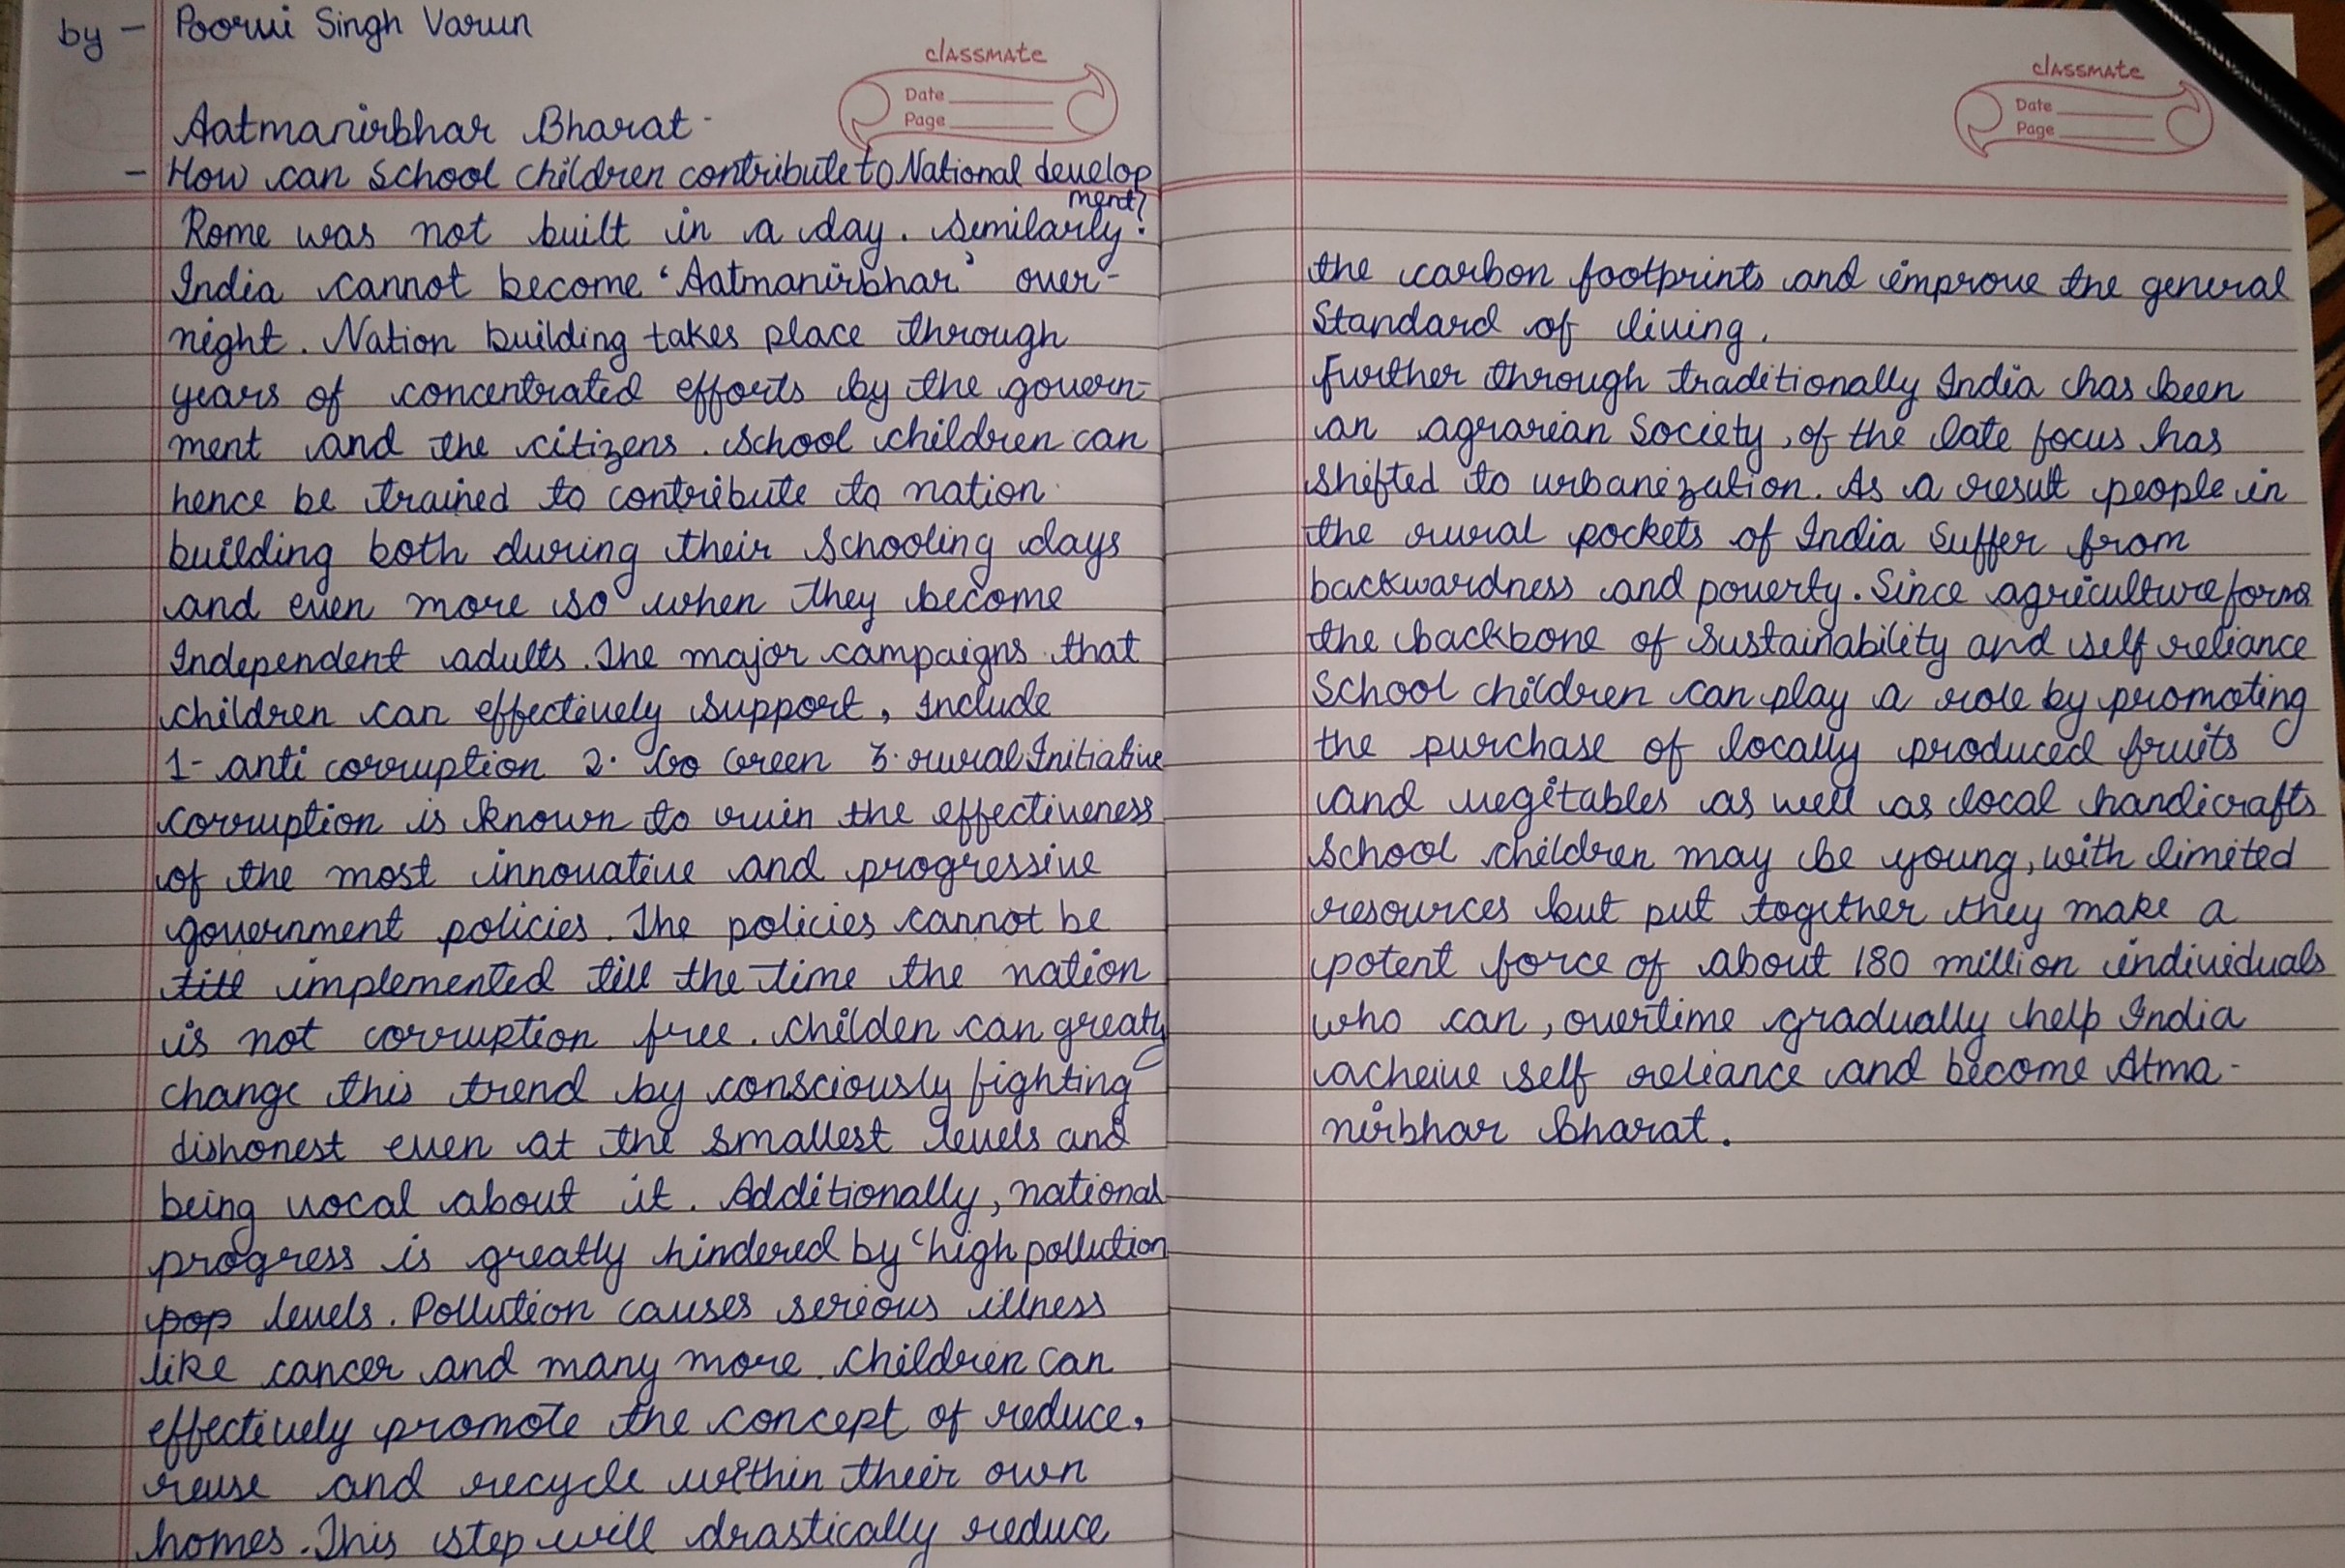 by - Poorvi Singh Varun
classmate
Date
Page
Aatmanirbhar Bharat-
- How can School children contribute to National develop
ment?
Rome was not built in a day. Similarly.
India cannot become 'Aatmanirbhar' over-
night. Nation building takes place through
years of concentrated efforts by the govern-
ment and the citizens. School children can
hence be trained to contribute to nation
building both during their schooling days
and even more so when they become
Independent adults. The major campaigns that
children can effectively support, include
1- anti corruption 2. Go Green 3. rural Initiative
corruption is known to ruin the effectiveness
of the most innovative and progressive
government policies. The policies cannot be
till implemented till the time the nation
is not corruption free. Childen can greaty
change this trend by consciously fighting
dishonest even at the smallest levels and
being vocal about it. Additionally, national
progress is greatly hindered by 'high pollution
pop levels. Pollution causes serious illness
like cancer and many more. Children can
effectively promote the concept of reduce,
reuse and recycle within their own
homes. This step will drastically reduce
classmate
Date
Page
the carbon footprints and improve the general
Standard of living.
Further through traditionally India has been
an agrarian Society, of the late focus has
shifted to urbanization. As a result people in
the rural pockets of India Suffer from
backwardness and poverty. Since agriculture forms
the backbone of sustainability and self reliance
School children can play a role by promoting
the purchase of locally produced fruits
and vegitables as well as local handicrafts
School children may be young, with limited
resources but put together they make a
potent force of about 180 million individuals
who can, overtime gradually help India
acheive self reliance and become Atma-
nirbhar Bharat.